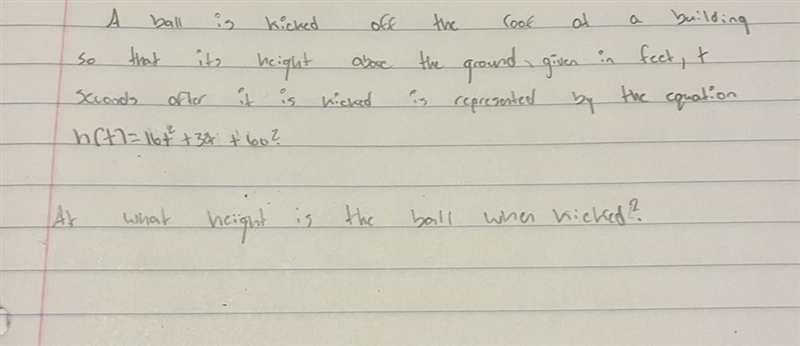 A ball is kicked off the roof of a building
so that its height above the ground, given in feet, t
seconds after it is kicked is represented by the equation
h(t)=16t² +32t +60?
At what height is the ball when kicked?